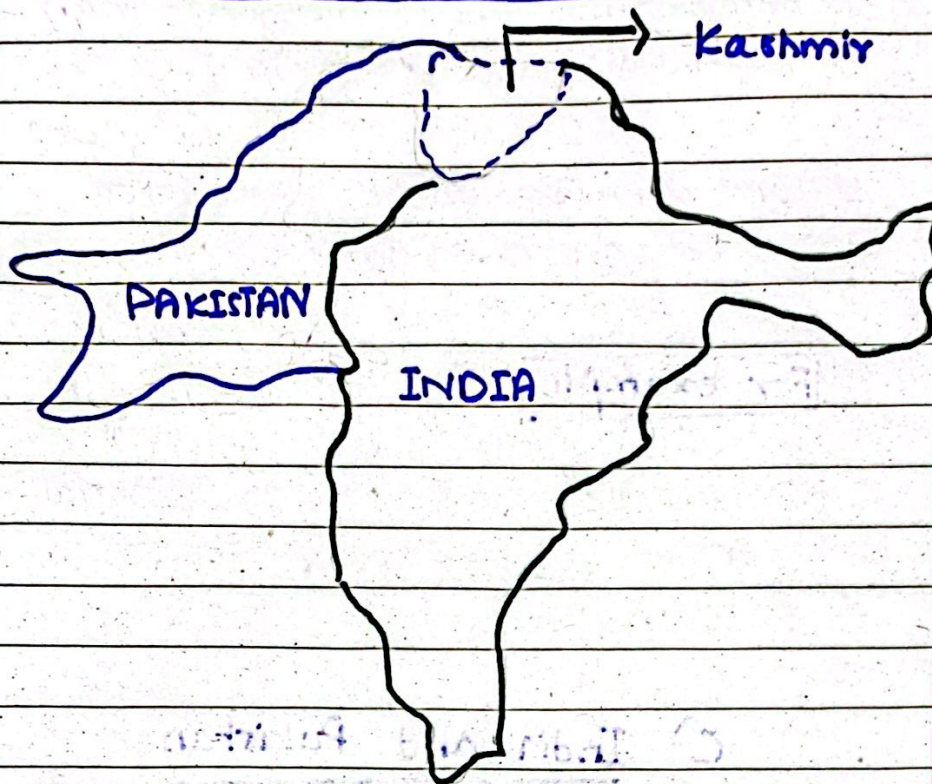 Kashmir
PAKISTAN
INDIA